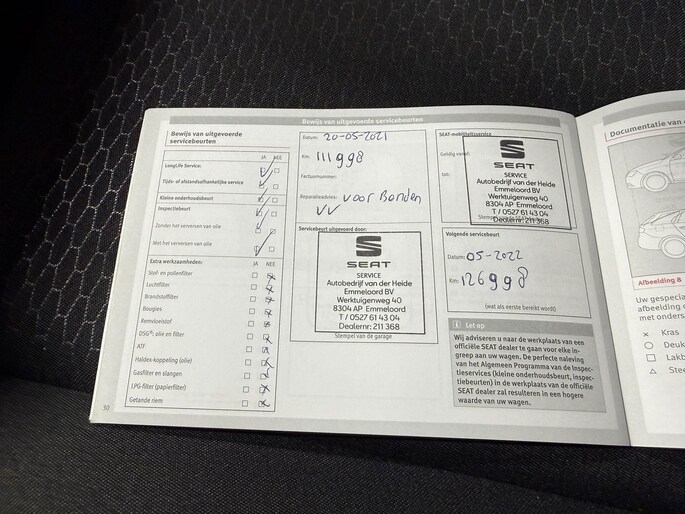 Bewijs van uitgevoerde servicebeurten
Bewijs van uitgevoerde
servicebeurten
JA NEE
LongLife Service:
Tijds- of afstandsafhankelijke service
Kleine onderhoudsbeurt
Inspectiebeurt
Zonder het verversen van olie
Met het verversen van olie
Extra werkzaamheden: JA NEE
Stof- en pollenfilter
Luchtfilter
Brandstoffilter
Bougies
Remvloeistof
DSG®: olie en filter
ATF
Haldex-koppeling (olie)
Gasfilter en slangen
LPG-filter (papierfilter)
Getande riem
30
Datum: 20-05-2021
Km: 111998
Factuurnummer:
Reparatieadvies: voor Banden
VV
Servicebeurt uitgevoerd door:
SEAT
SERVICE
Autobedrijf van der Heide
Emmeloord BV
Werktuigenweg 40
8304 AP Emmeloord
T / 0527 61 43 04
Dealernr: 211 368
Stempel van de garage
SEAT-mobiliteitsservice
Geldig vanaf:
tot:
SEAT
SERVICE
Autobedrijf van der Heide
Emmeloord BV
Werktuigenweg 40
8304 AP Emmeloord
T / 0527 61 43 04
Dealernr: 211 368
Volgende servicebeurt
Datum: 05-2022
Km: 126998
(wat als eerste bereikt wordt)
i Let op
Wij adviseren u naar de werkplaats van een
officiële SEAT dealer te gaan voor elke in-
greep aan uw wagen. De perfecte naleving
van het Algemeen Programma van de Inspec-
tieservices (kleine onderhoudsbeurt, inspec-
tiebeurten) in de werkplaats van de officiële
SEAT dealer zal resulteren in een hogere
waarde van uw wagen.
Documentatie van
Afbeelding 8
Uw gespecia
afbeelding
met onders
× Kras
○ Deuk
□ Lakb
△ Stee